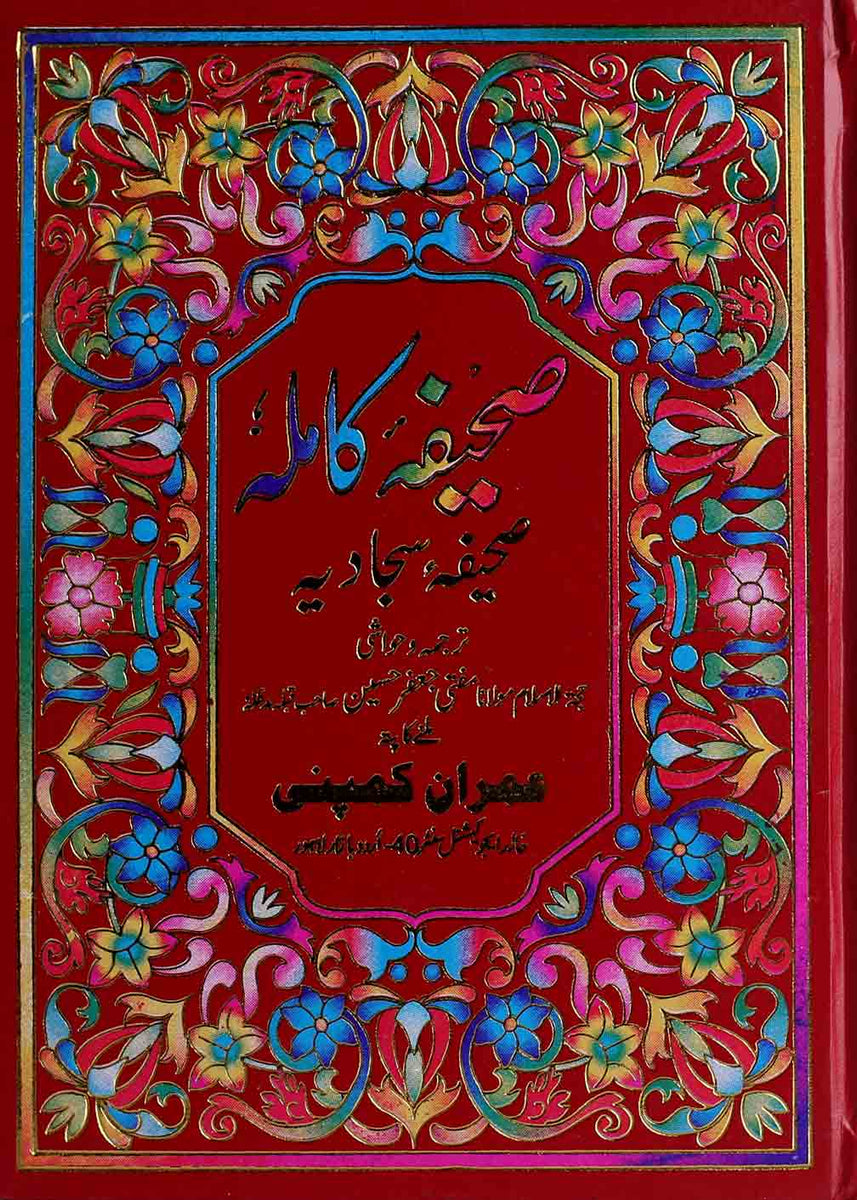 صحیفہٴ کاملہ
صحیفہٴ سجادیہ
ترجمہ و حواشی
حجۃ الاسلام مولانا مفتی جعفر حسین صاحب قبلہ مدظلہ
ملنے کا پتہ
عمران کمپنی
ایجوکیشنل سنٹر 40- اُردو بازار لاہور